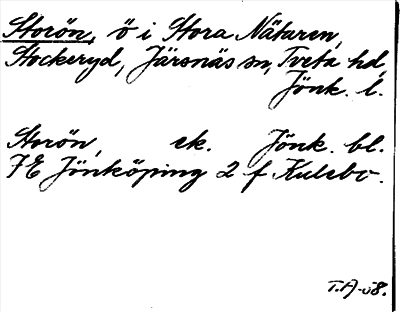 Storön, ö i Stora Nätaren,
Stockeryd, Järsnäs sn, Tveta hd,
Jönk. l.
Storön, ek. Jönk. bl.
7E Jönköping 2 f. Kulebo.
T.A-58.